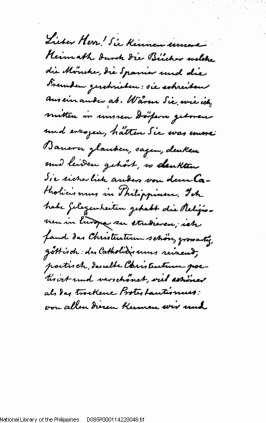 Lieber Herr! Sie kennen unsere
Heimath durch die Bücher welche
die Mönche, die Spanier und die
Fremden geschrieben: sie schreiben
auseinander ab. Wären Sie, wie ich,
mitten in unsern Dörfern geboren
und erzogen, hätten Sie was unsere
Bauern glauben, sagen, denken
und leiden gehört, so denkten
Sie sicherlich anders von dem Ca-
tholicismus in Philippinen. Ich
habe Gelegenheiten gehabt die Religio-
nen in Europa zu studieren; ich
fand das Christentum schön, grossartig,
göttlich: der Catholicismus reizend,
poetisch, dasselbe Christentum poe-
tisirt und verschönert, viel schöner
als das trockene Protestantismus:
von allen diesen kennen wir und
National Library of the Philippines D085P000114220046.tif